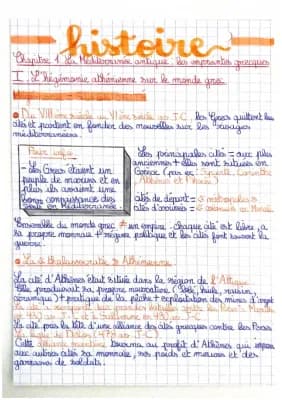 histoire
Chapitre 1 La Méditerranée antique : les empreintes grecques
I L'hégémonie athénienne sur le monde grec
Du VIII ème siècle au siècle av J-C, les Grecs quittent les
cités et partent en fonder des nouvelles sur les rivages
méditerranéens.
Pour info
Les Grecs étaient un
peuple de marins et en
plus ils avaient une
bonne connaissance des
vents en Méditerranée
Les principales cités = aux plus
anciennes + elles sont situées en
Grèce (par ex : Sparte, Corinthe
Athènes et
cités de départ = métropoles
cités d'arrivées = colonies
Ensemble du monde grec ≠ un empire chaque cité est libre, a
sa propre monnaie + régime politique et les cités font souvent la
guerre.
La thalassocratie Athénienne
La cité d'Athènes était située dans la région de l'Attique
Elle produisait sa propre nourriture (blé, huile, raisin,
céramique) + pratique de la pêche + exploitation des mines d'argent
La cité a remporté deux grandes batailles contre les Perses : Marathon
en 490 av J-C et à Salamine en 480 av J-C
La cité prend la tête d'une alliance des cités grecques contre les Perses
la ligue de Délos (478 av J-C)
Cette alliance au profit d'Athènes qui impose
aux autres cités sa monnaie, ses poids et mesures et des
garnisons de soldats.